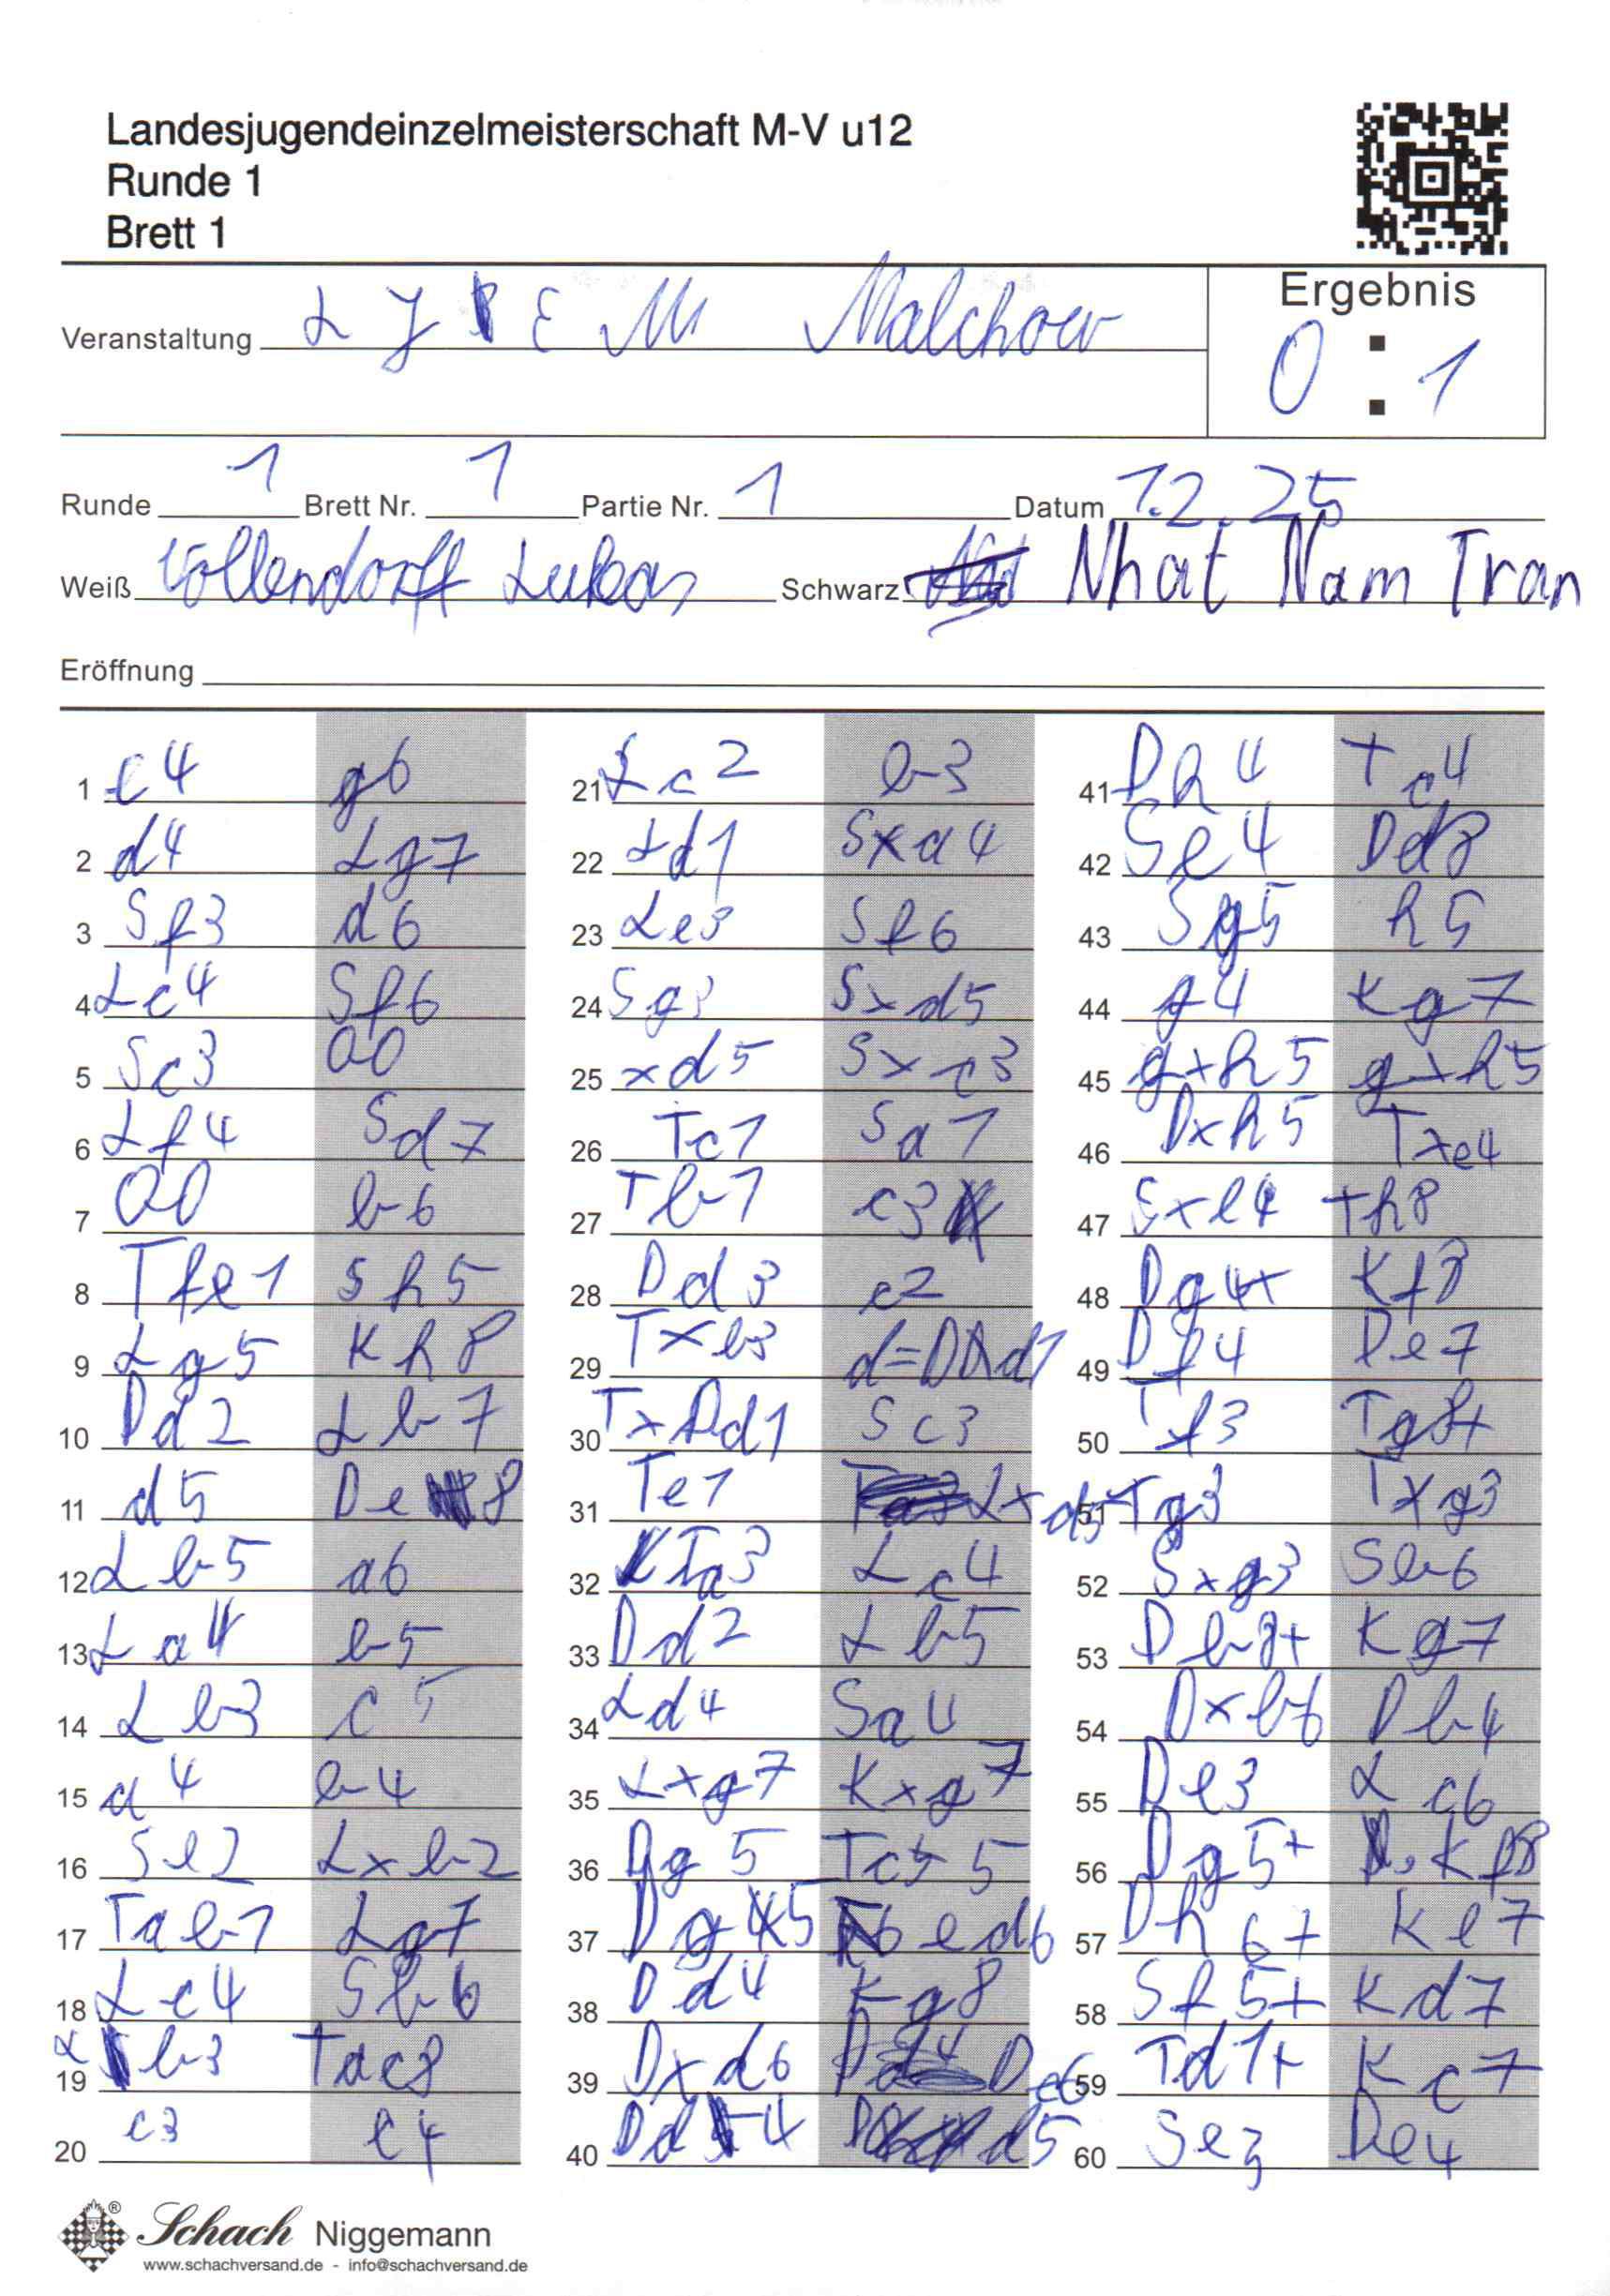 Landesjugendeinzelmeisterschaft M-V u12
Runde 1
Brett 1
Ergebnis
Veranstaltung L J E M Malchow
0 : 1
Runde 1 Brett Nr. 1 Partie Nr. 1 Datum 1.2.25
Weiß Vollendorff Lukas Schwarz Nhat Nam Tran
Eröffnung
1 e4 g6
2 d4 Lg7
3 Sf3 d6
4 Lc4 Sf6
5 Sc3 00
6 Lf4 Sd7
7 00 b6
8 Tfe1 Sh5
9 Lg5 Kh8
10 Dd2 Lb7
11 d5 De8
12 Lb5 a6
13 La4 b5
14 Lb3 c5
15 a4 b4
16 Se2 Lxb2
17 Tab1 Lg7
18 Lc4 Sb6
19 Lb3 Tac8
20 c3 c4
21 Lc2 b3
22 Ld1 Sxa4
23 Le3 Sf6
24 Sg3 Sxd5
25 xd5 Sxc3
26 Tc1 Sa1
27 Tb1 c3
28 Dd3 c2
29 Txb3 d=Dxd1
30 TxDd1 Sc3
31 Te1 Lxd5
32 Ta3 Lc4
33 Dd2 Lb5
34 Ld4 Sa4
35 Lxg7 Kxg7
36 Dg5 Tc5
37 Dg5 ed6
38 Dd4 Kg8
39 Dxd6 De6
40 Dd4 d5
41 Dh4 Tc4
42 Se4 Dd8
43 Sg5 h5
44 g4 Kg7
45 gxh5 gxh5
46 Dxh5 Txe4
47 Sxe4 Th8
48 Dg4+ Kf8
49 Df4 De7
50 Tf3 Tg8+
51 Tg3 Txg3
52 Sxg3 Sb6
53 Db8+ Kg7
54 Dxb6 Db4
55 De3 Lc6
56 Dg5+ Kf8
57 Dh6+ Ke7
58 Sf5+ Kd7
59 Td1+ Kc7
60 Se3 De4
Schach Niggemann
www.schachversand.de - info@schachversand.de